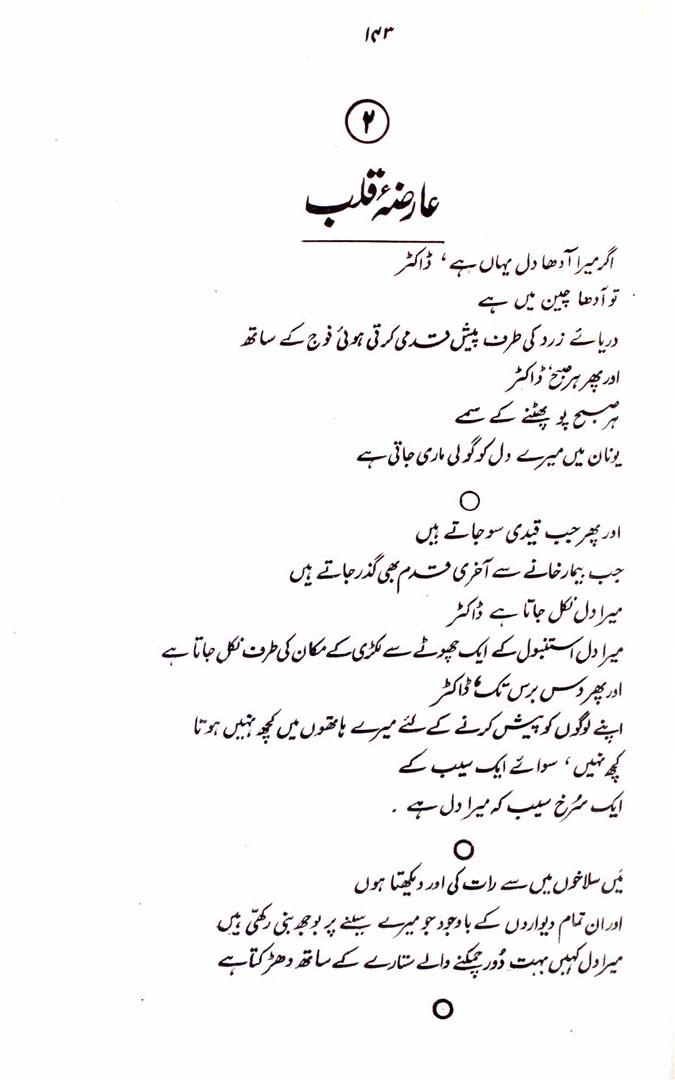 ۱۴۳
۲
عارضۂ قلب
اگر میرا آدھا دل یہاں ہے، ڈاکٹر
تو آدھا چین میں ہے
دریائے زرد کی طرف پیش قدمی کرتی ہوئی فوج کے ساتھ
اور پھر ہر صبح، ڈاکٹر
ہر صبح پو پھٹنے کے سمے
یونان میں میرے دل کو گولی ماری جاتی ہے
اور پھر جب قیدی سو جاتے ہیں
جب بیمار خانے سے آخری قدم بھی گذر جاتے ہیں
میرا دل نکل جاتا ہے ڈاکٹر
میرا دل استنبول کے ایک چھوٹے سے لکڑی کے مکان کی طرف نکل جاتا ہے
اور پھر دس برس تک، ڈاکٹر
اپنے لوگوں کو پیش کرنے کے لئے میرے ہاتھوں میں کچھ نہیں ہوتا
کچھ نہیں، سوائے ایک سیب کے
ایک سُرخ سیب کہ میرا دل ہے ۔
مَیں سلاخوں میں سے رات کی اور دیکھتا ہوں
اور ان تمام دیواروں کے باوجود جو میرے سینے پر بوجھ بنی رکھّی ہیں
میرا دل کہیں بہت دُور چمکنے والے ستارے کے ساتھ دھڑکتا ہے